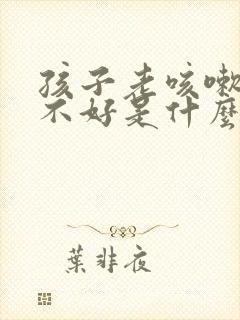 孩子老咳嗽
不好是什麼
葉非夜